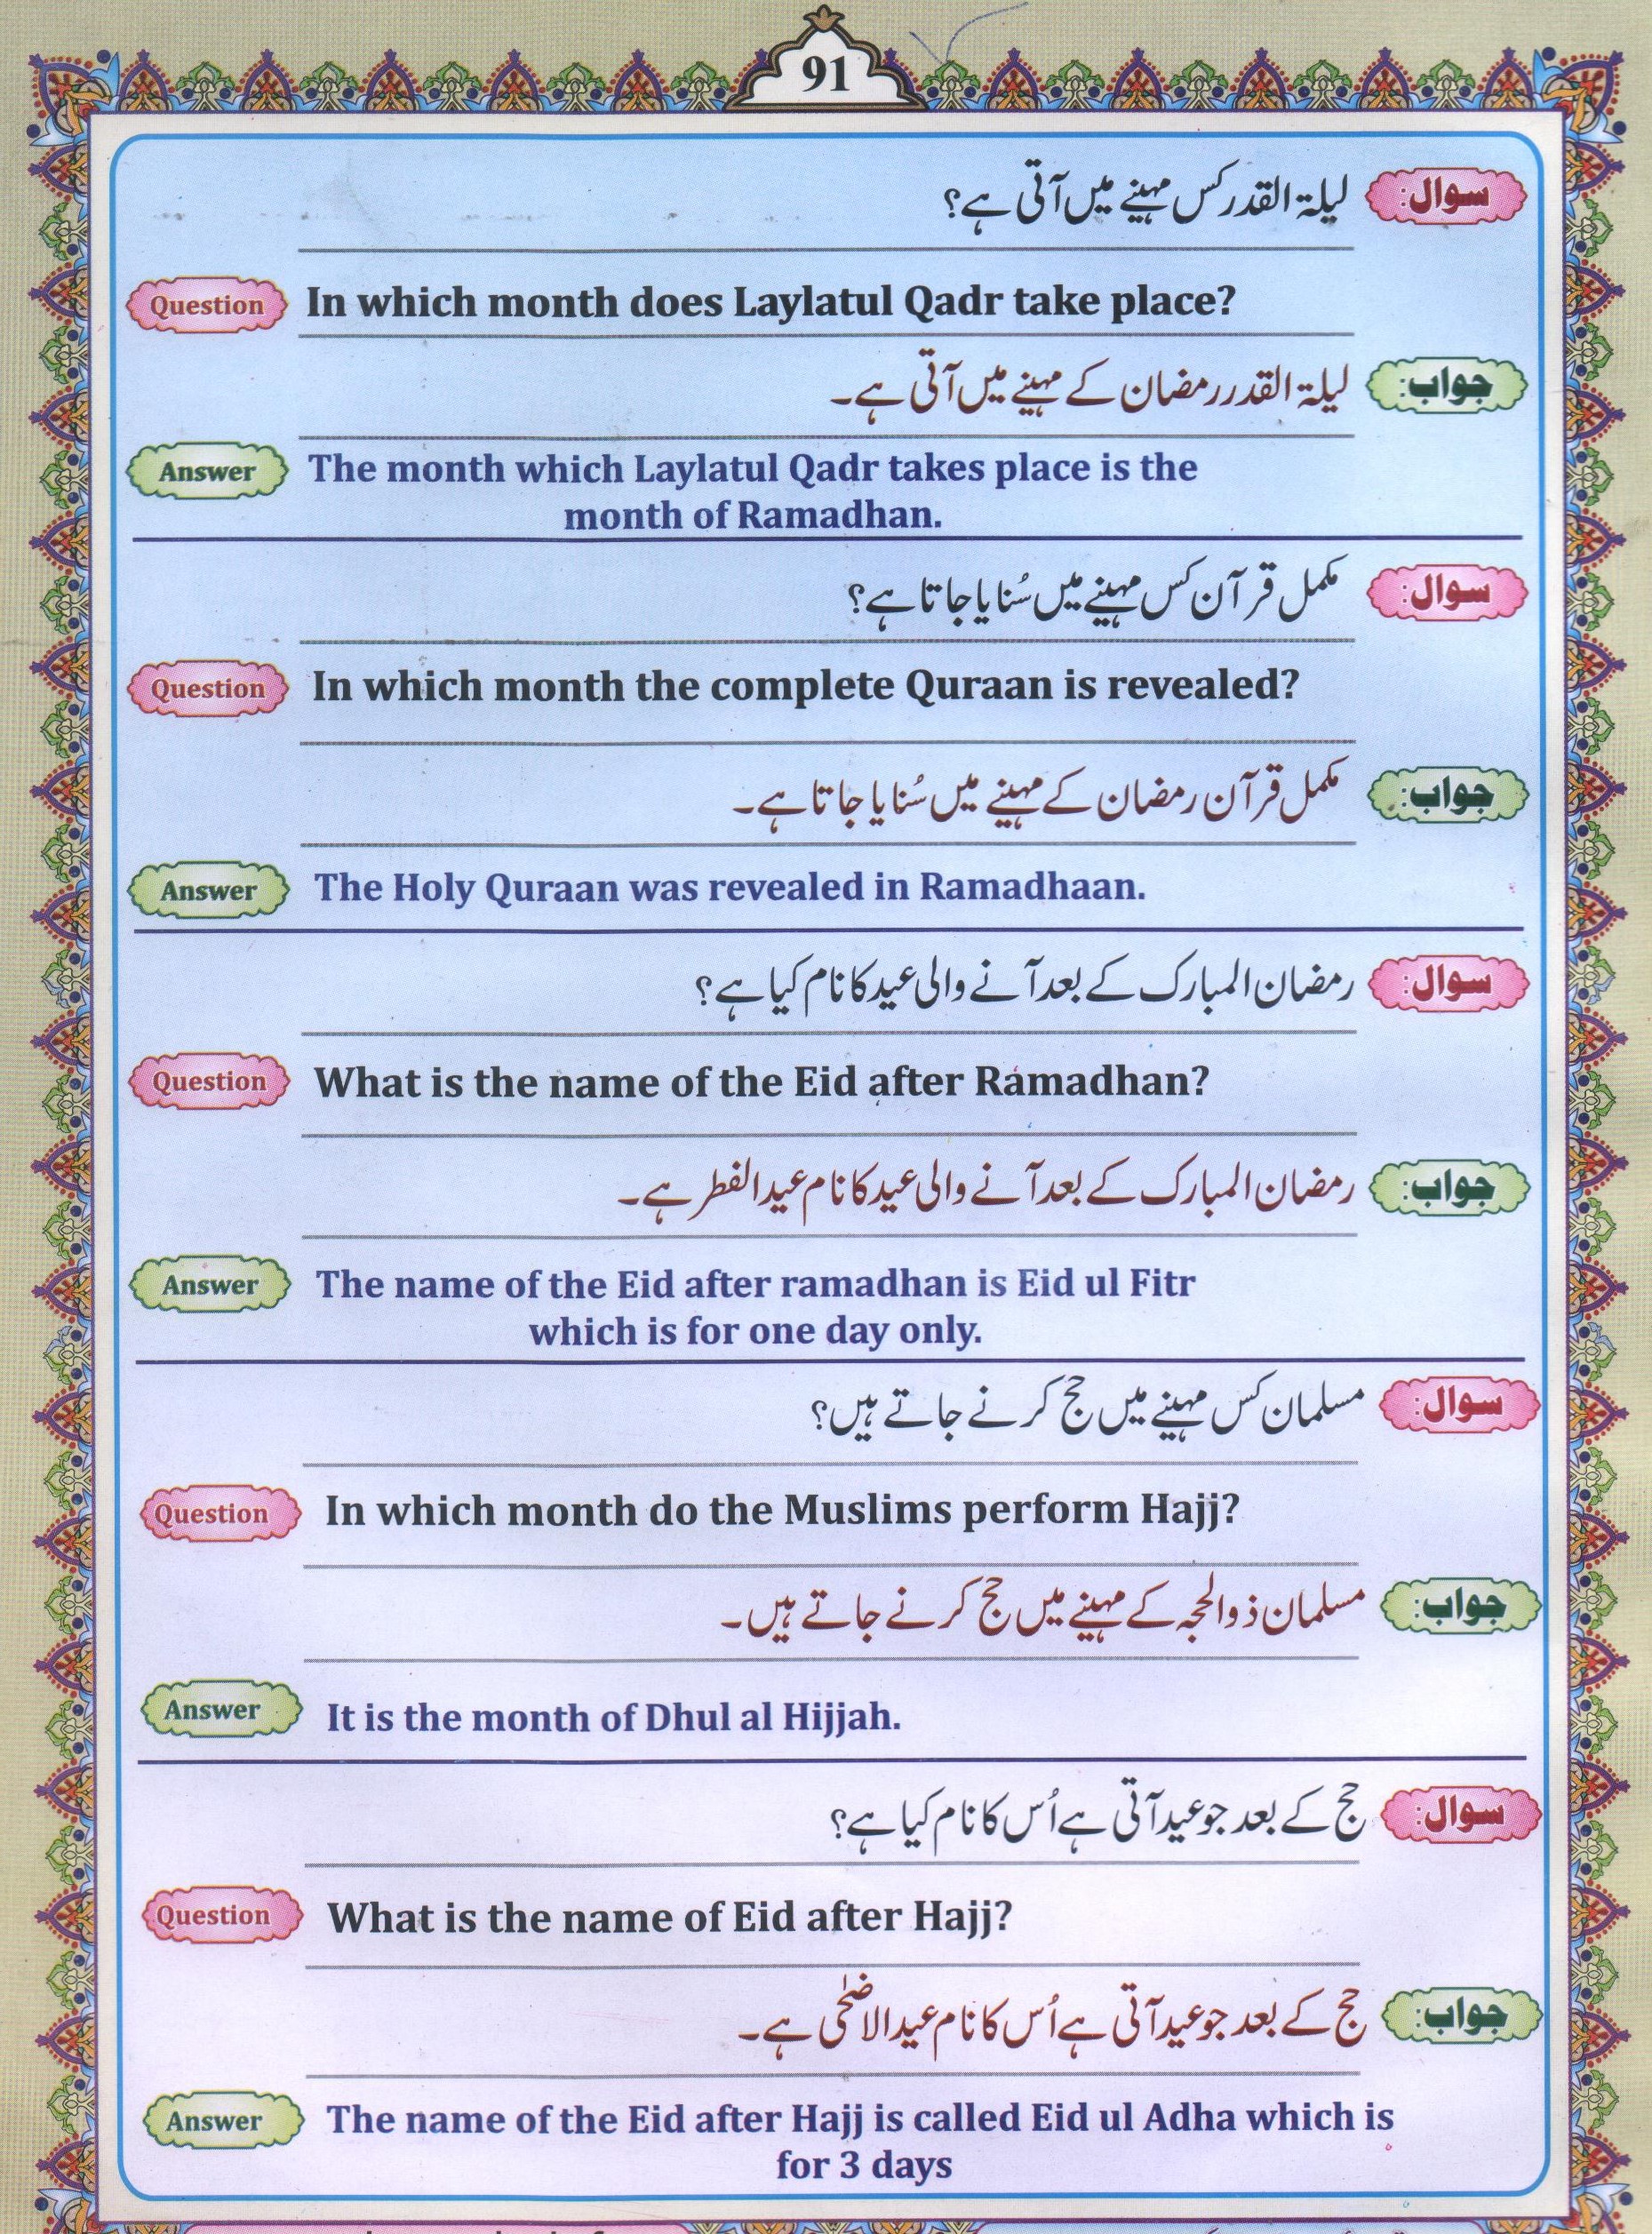 91
سوال: لیلۃ القدر کس مہینے میں آتی ہے؟
Question In which month does Laylatul Qadr take place?
جواب: لیلۃ القدر رمضان کے مہینے میں آتی ہے۔
Answer The month which Laylatul Qadr takes place is the
month of Ramadhan.
سوال: مکمل قرآن کس مہینے میں سُنایا جاتا ہے؟
Question In which month the complete Quraan is revealed?
جواب: مکمل قرآن رمضان کے مہینے میں سُنایا جاتا ہے۔
Answer The Holy Quraan was revealed in Ramadhaan.
سوال: رمضان المبارک کے بعد آنے والی عید کا نام کیا ہے؟
Question What is the name of the Eid after Ramadhan?
جواب: رمضان المبارک کے بعد آنے والی عید کا نام عید الفطر ہے۔
Answer The name of the Eid after ramadhan is Eid ul Fitr
which is for one day only.
سوال: مسلمان کس مہینے میں حج کرنے جاتے ہیں؟
Question In which month do the Muslims perform Hajj?
جواب: مسلمان ذوالحجہ کے مہینے میں حج کرنے جاتے ہیں۔
Answer It is the month of Dhul al Hijjah.
سوال: حج کے بعد جو عید آتی ہے اُس کا نام کیا ہے؟
Question What is the name of Eid after Hajj?
جواب: حج کے بعد جو عید آتی ہے اُس کا نام عید الاضحٰی ہے۔
Answer The name of the Eid after Hajj is called Eid ul Adha which is
for 3 days